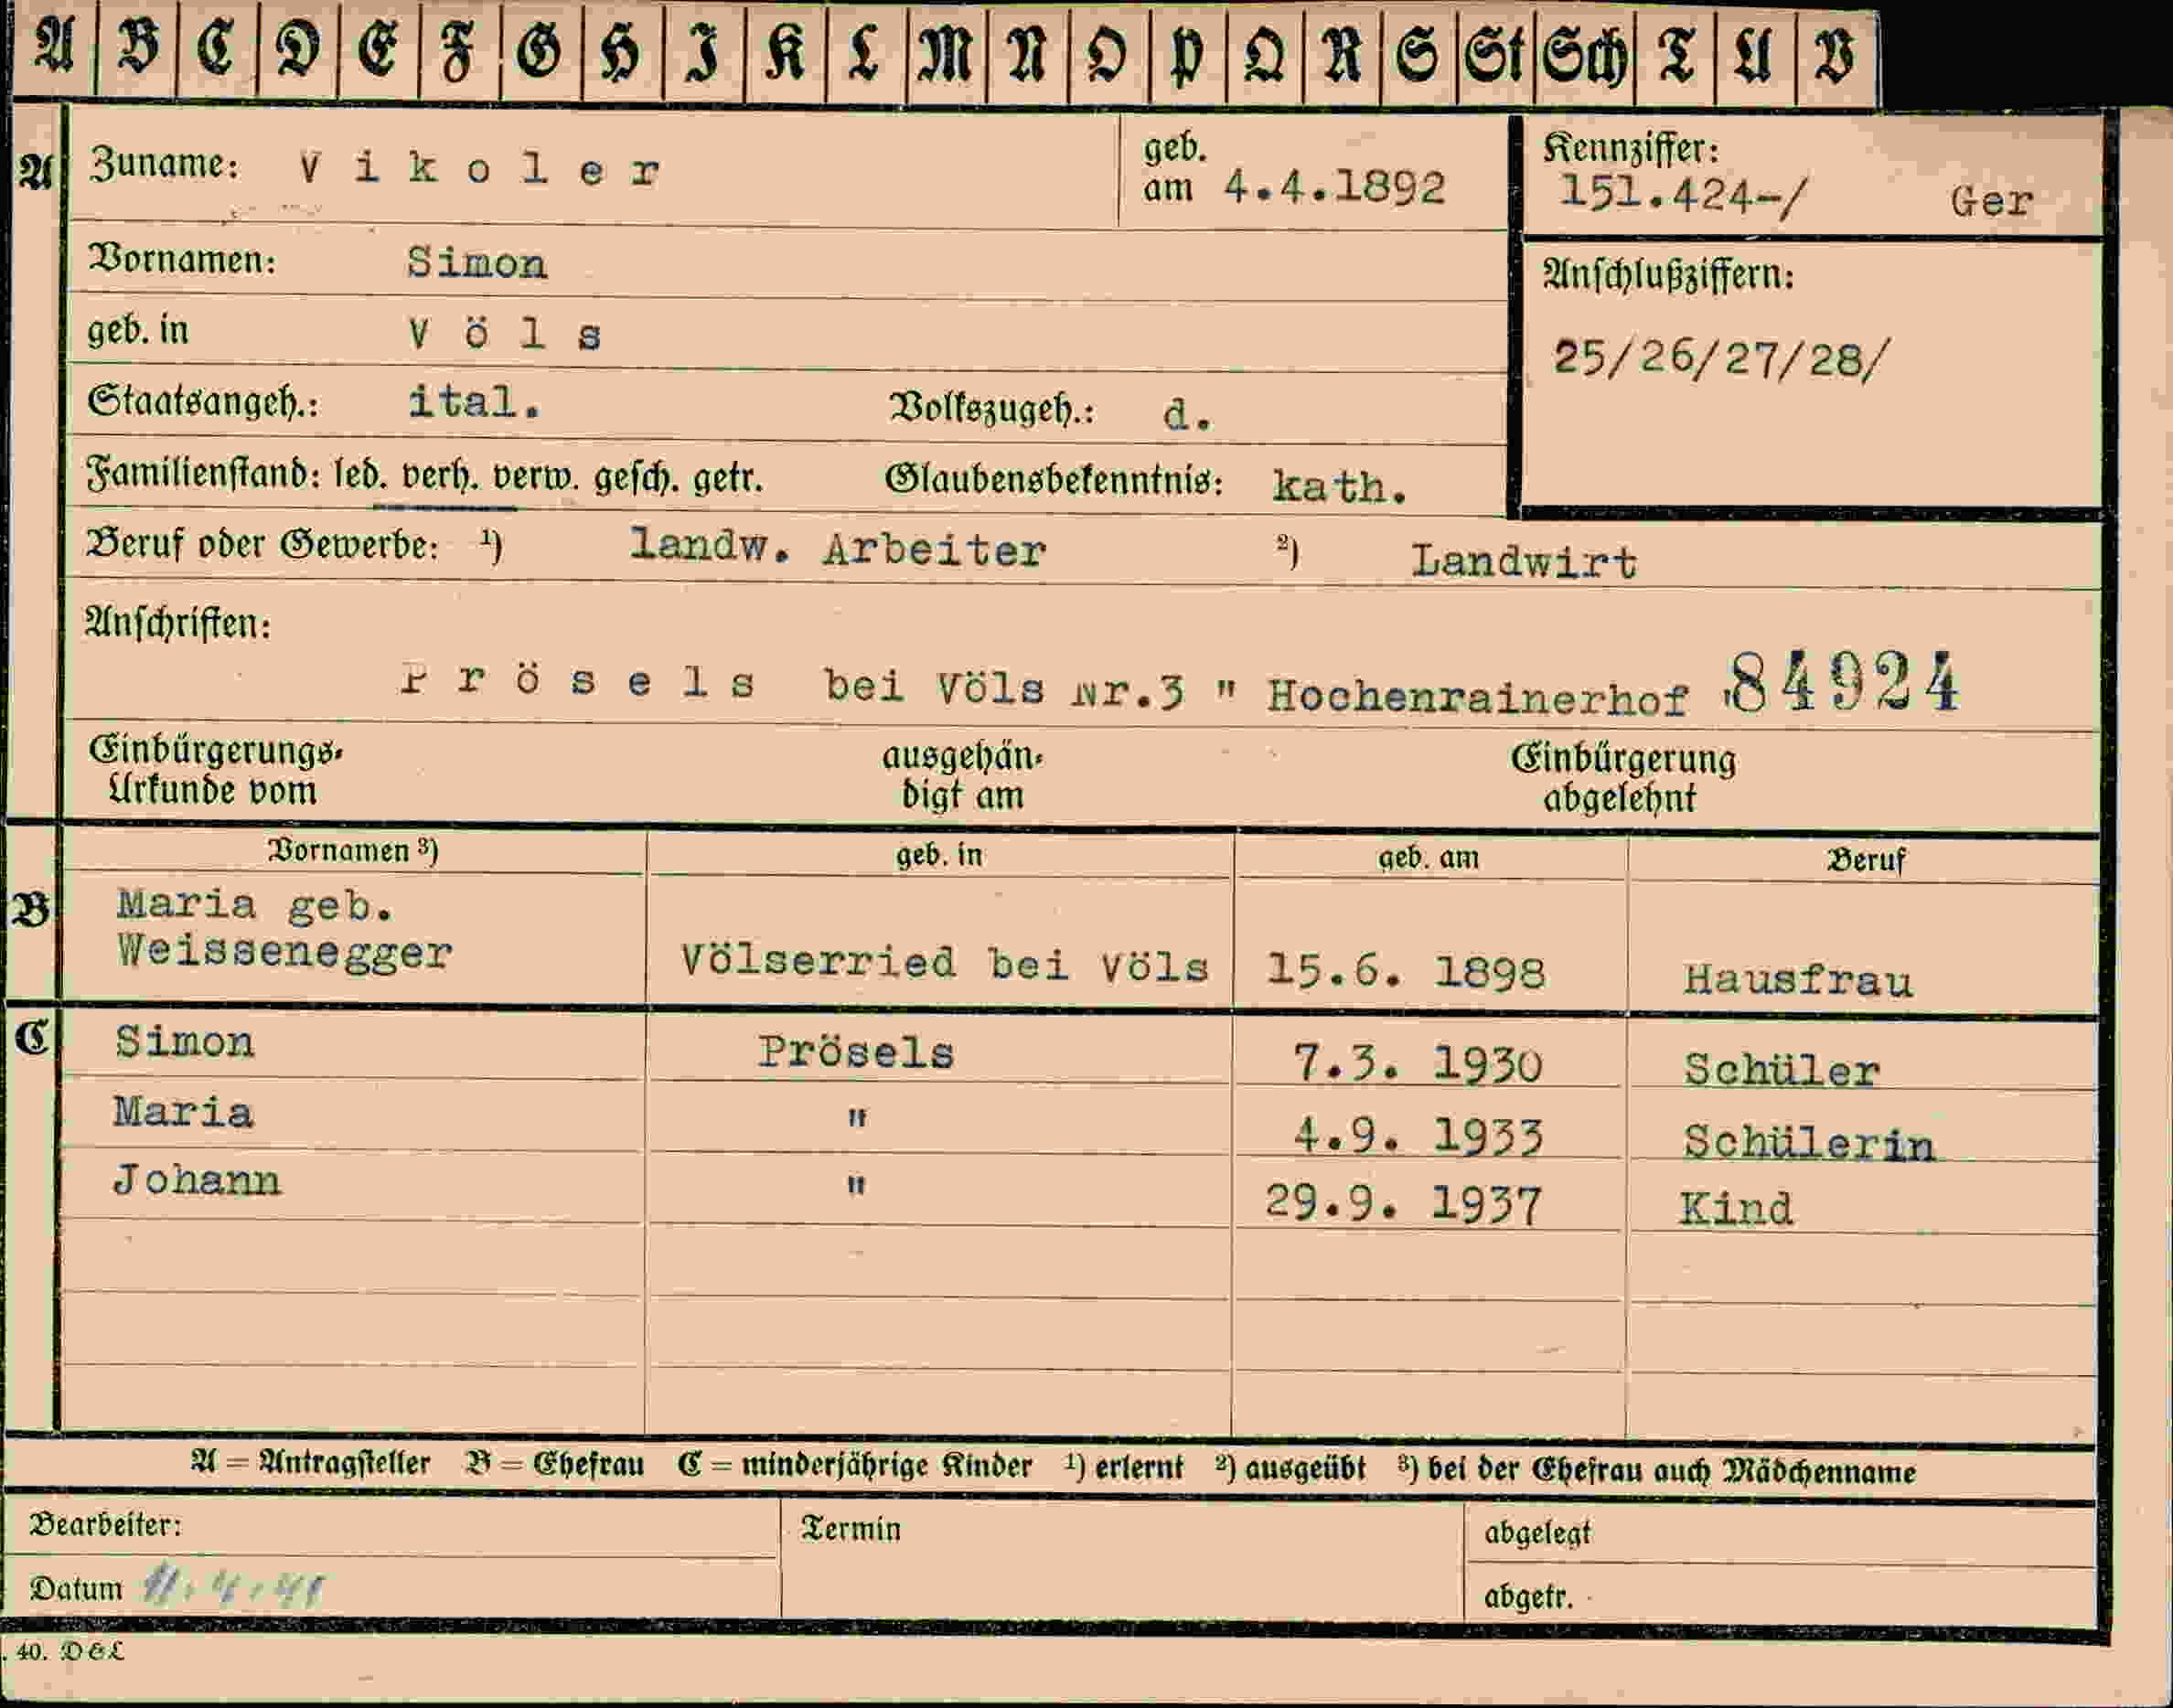 A B C D E F G H I K L M N O P Q R S St Sch T U V
A Zuname: V i k o l e r geb. am 4.4.1892
Kennziffer: 151.424-/ Ger
Vornamen: Simon
Anschlußziffern:
25/26/27/28/
geb. in V ö l s
Staatsangeh.: ital. Volkszugeh.: d.
Familienstand: led. verh. verw. gesch. getr. Glaubensbekenntnis: kath.
Beruf oder Gewerbe: ¹) landw. Arbeiter ²) Landwirt
Anschriften:
P r ö s e l s bei Völs Nr.3 " Hochenrainerhof 84924
Einbürgerungs-Urkunde vom ausgehändigt am Einbürgerung abgelehnt
Vornamen ³) geb. in geb. am Beruf
B Maria geb.
Weissenegger Völserried bei Völs 15.6. 1898 Hausfrau
C Simon Prösels 7.3. 1930 Schüler
Maria " 4.9. 1933 Schülerin
Johann " 29.9. 1937 Kind
A = Antragsteller B = Ehefrau C = minderjährige Kinder ¹) erlernt ²) ausgeübt ³) bei der Ehefrau auch Mädchenname
Bearbeiter: Termin abgelegt
Datum 11.4.41 abgetr.
. 40. D&L